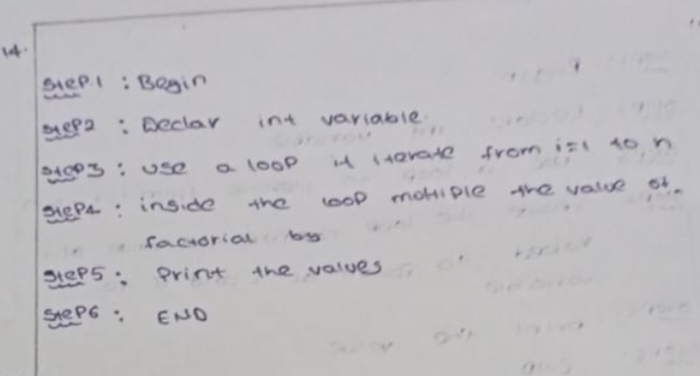 14.
Step1 : Begin
Step2 : Declar int variable.
Step3 : use a loop it iterate from i=1 to n
Step4 : inside the loop moltiple the value of.
factorial by
Step5 : Print the values
Step6 : END